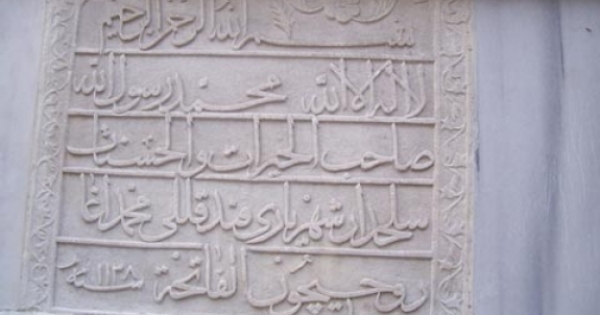 بسم الله الرحمن الرحيم
لا اله الا الله محمد رسول الله
صاحب الخيرات والحسنات
سلحدار شهرياري محمد اغا
روحيچون الفاتحة سنه ١١٢٨